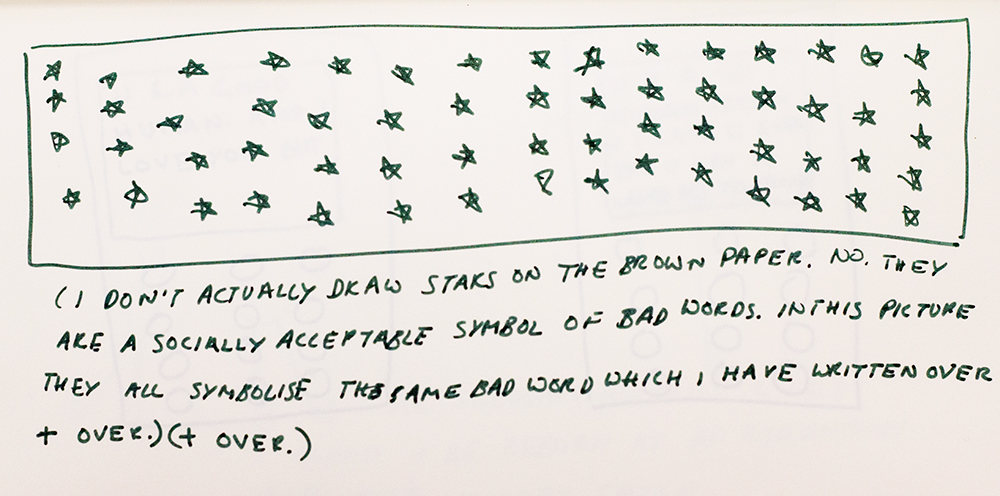 (I DON'T ACTUALLY DRAW STARS ON THE BROWN PAPER. NO, THEY
ARE A SOCIALLY ACCEPTABLE SYMBOL OF BAD WORDS. IN THIS PICTURE
THEY ALL SYMBOLISE THE SAME BAD WORD WHICH I HAVE WRITTEN OVER
+ OVER.) (+ OVER.)